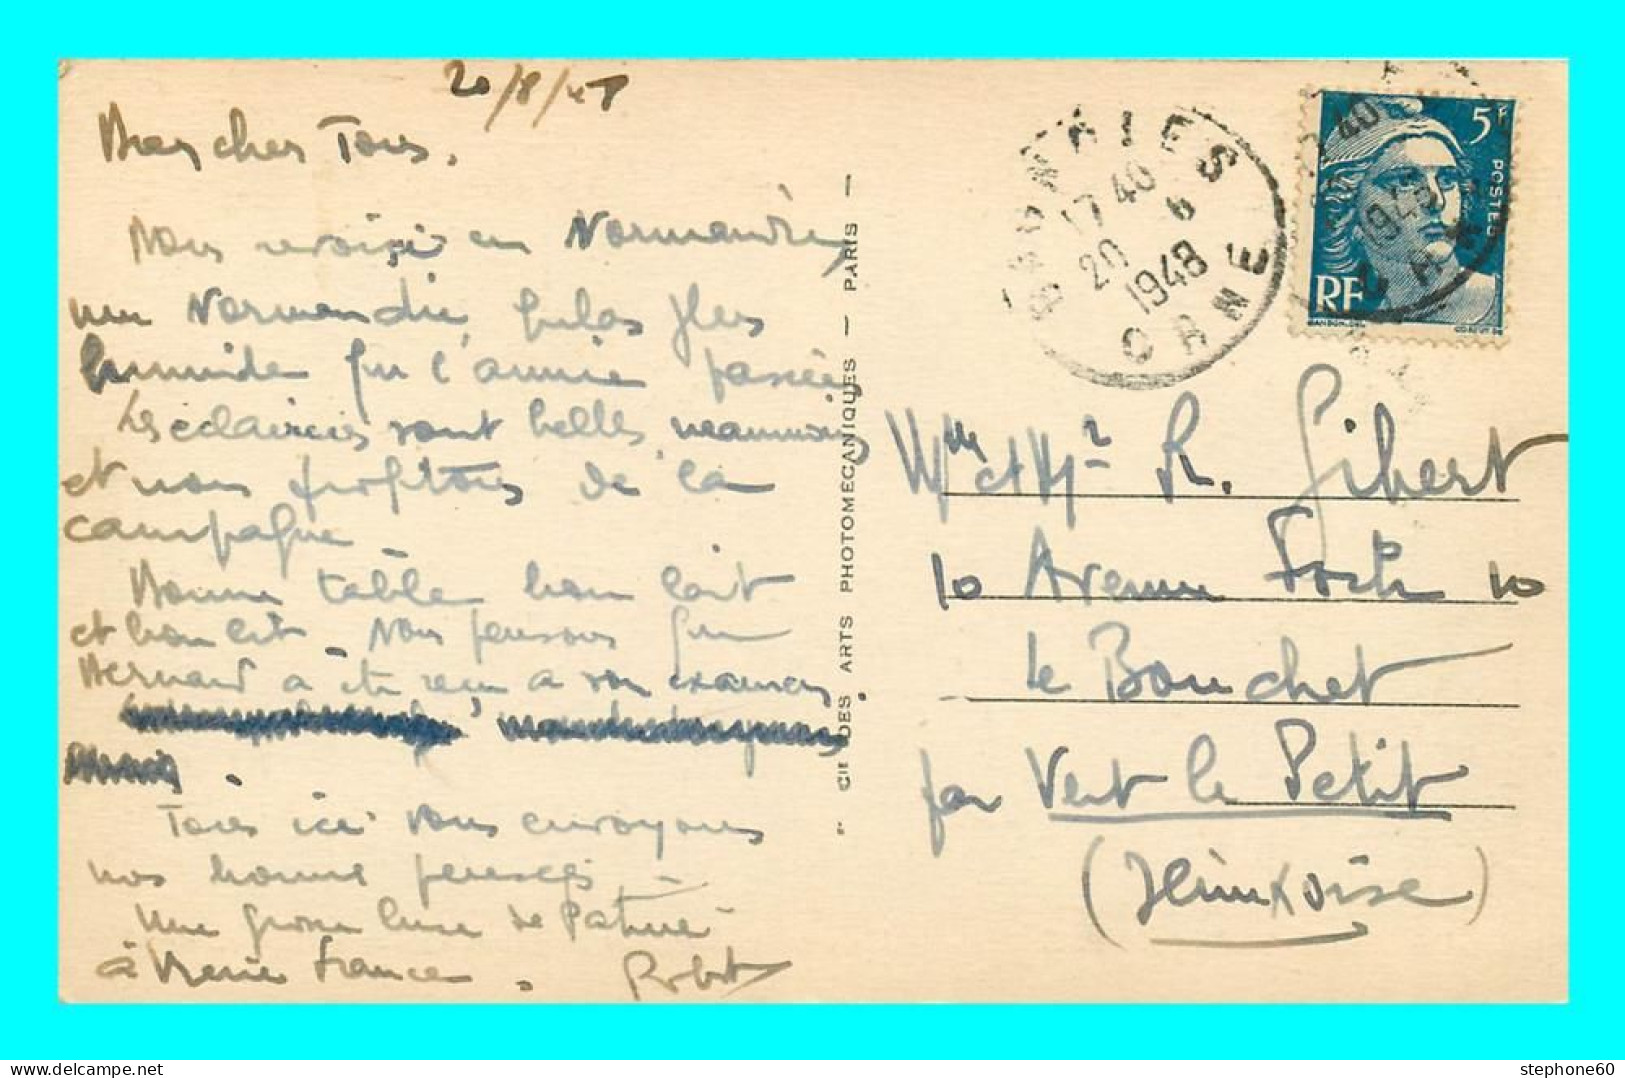 20/8/48
Mes chers Tous.
Nous revoici en Normandie,
une Normandie, hélas plus
humide que l'année passée
Les éclaircies sont belles néanmoins
et nous profitons de la
campagne
Bonne table bon lait
et bon lit. Nous pensons que
Bernard a été reçu à son examen.
Tous ici vous envoyons
nos bonnes pensées
Une grosse bise de
à Marie France. Robert
CIE DES ARTS PHOTOMECANIQUES — PARIS —
17 40
20 6
1948
ORNE
5F
POSTES
RF
Mme et Mr R. Gibert
10 Avenue Foch 10
Le Bouchet
par Vert le Petit
(Seine & Oise)
stephone60